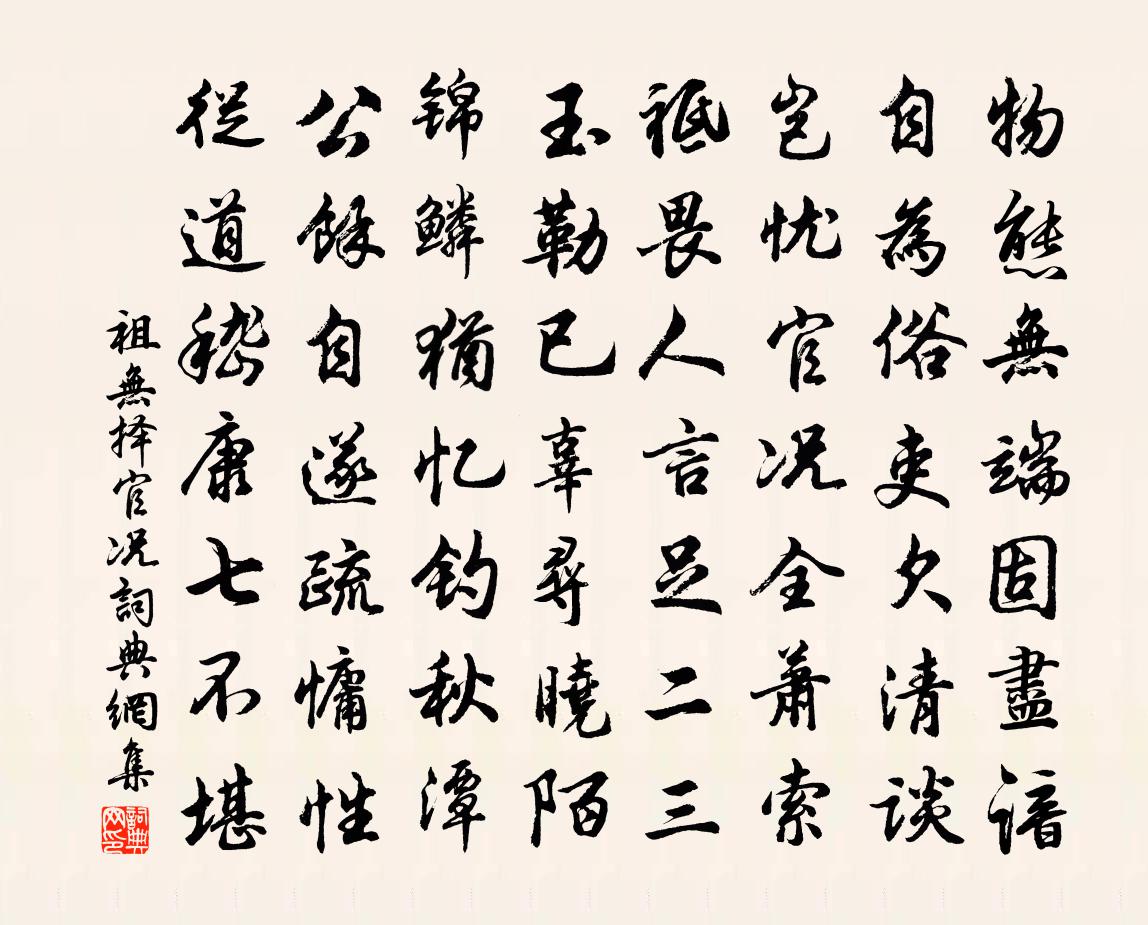 物態無端固盡諳
自為俗吏欠清談
岂忧官况全蕭索
祗畏人言足二三
玉勒已辜尋曉陌
锦鳞猶忆钓秋潭
公餘自遂疏慵性
從道嵇康七不堪
祖無择官况詞典網集
詞典網印